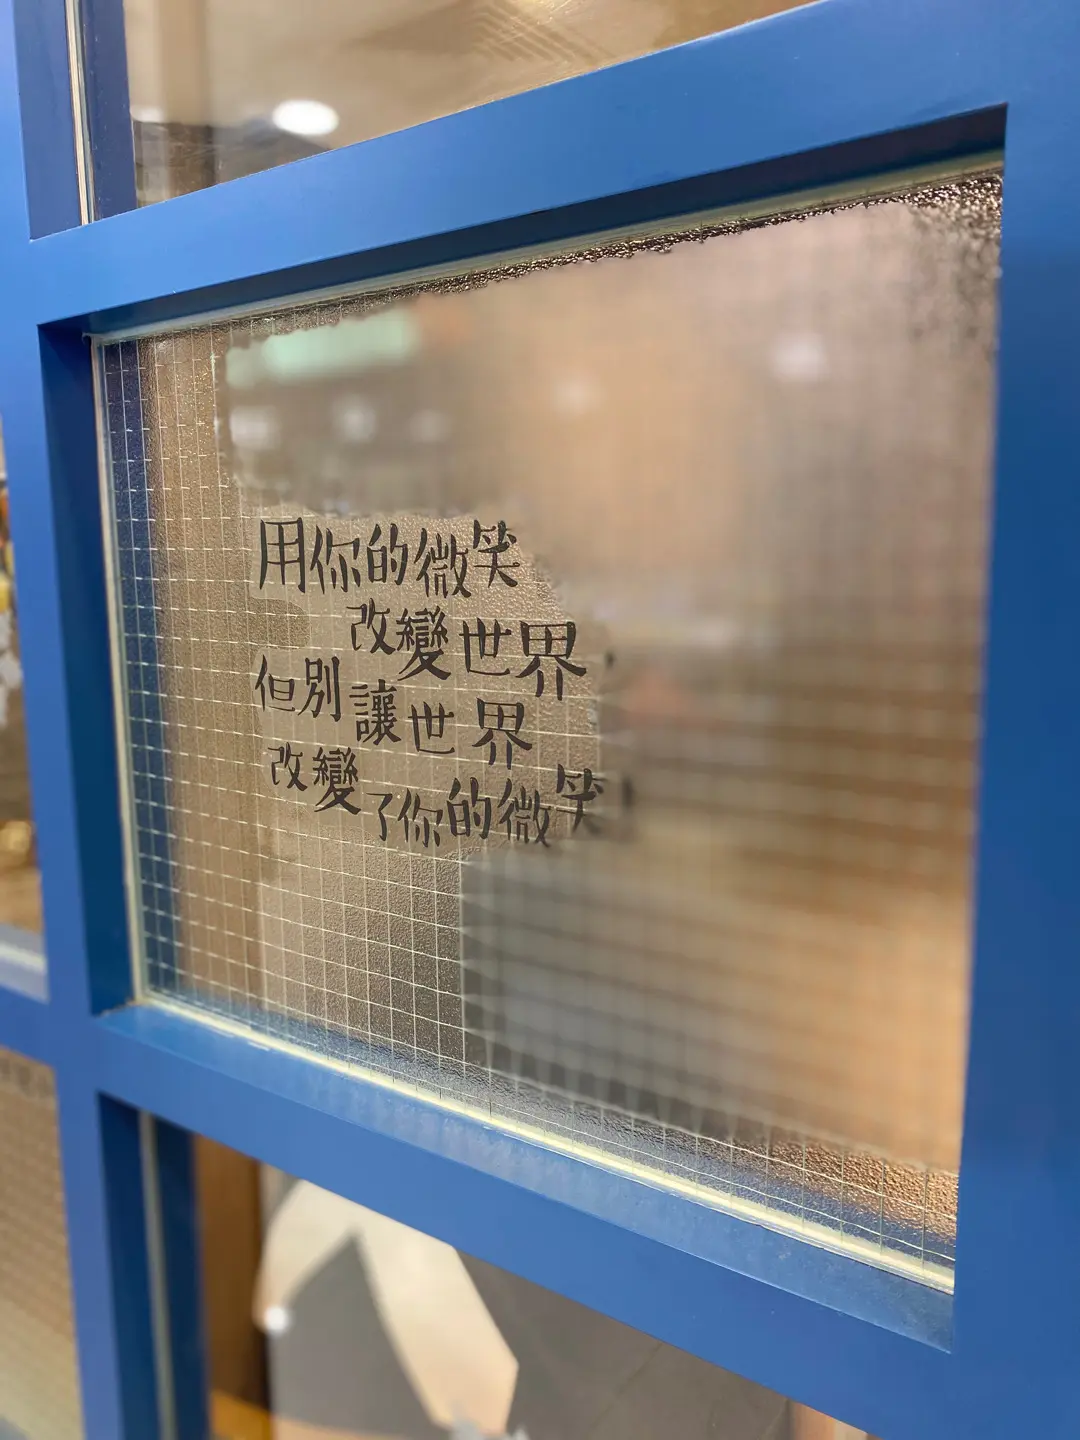 用你的微笑
改變世界
但別讓世界
改變了你的微笑